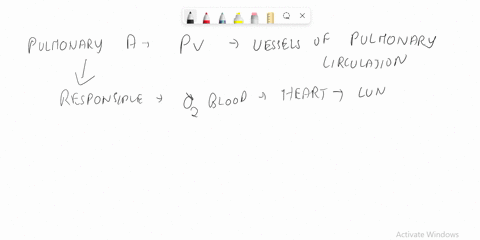 PULMONARY A → PV → VESSELS OF PULMONARY
CIRCULATION
RESPONSIBLE → O2 BLOOD → HEART → LUN
Activate Windows